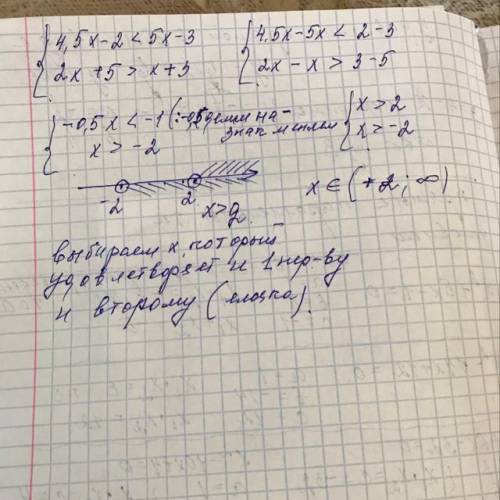 4,5x-2<5x-3
2x+5>x+3
4,5x-5x<2-3
2x-x>3-5
-0,5x<-1 (:-0,5 делим на- знак меняем
x>-2
x>2
x>-2
-2 2
x>2
x∈(+2;∞)
выбираем x, который
удовлетворяет и 1 нер-ву
и второму (елочка).